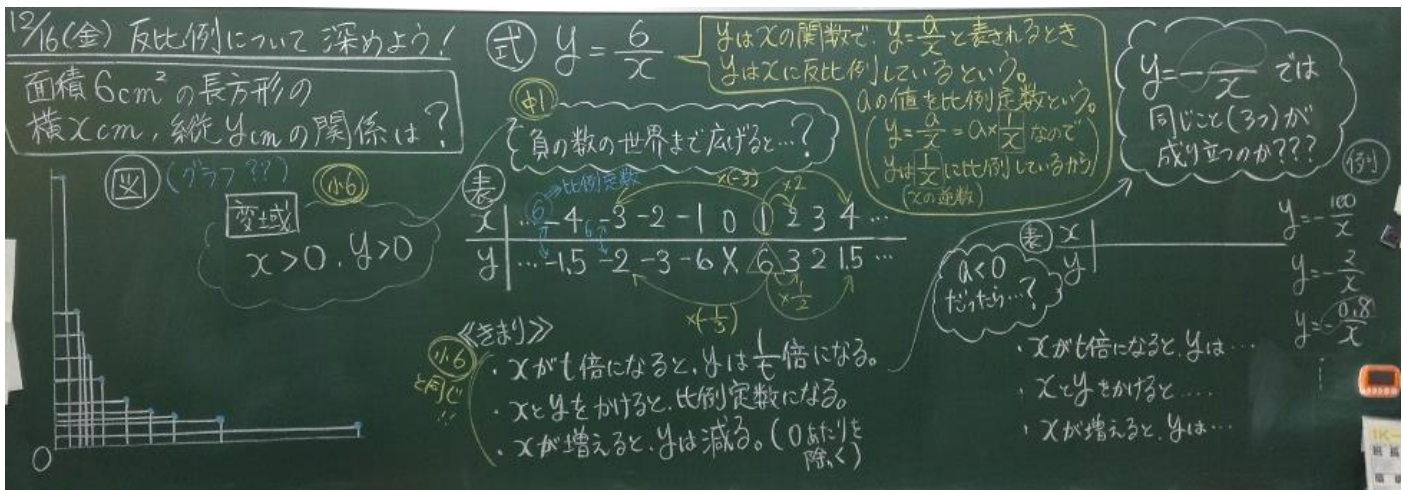 12/16(金) 反比例について 深めよう!
面積6cm²の長方形の
横xcm,縦ycmの関係は?
図 (グラフ??)
小6
変域
x>0, y>0
0
式 y=6/x
yはxの関数で、y=a/xと表されるとき
yはxに反比例しているという。
aの値を比例定数という。
(y=a/x=a×1/xなので
yは1/xに比例しているから)
(xの逆数)
中1
負の数の世界まで広げると…?
表
6→比例定数
×(-3) ×2
x … -4 -3 -2 -1 0 1 2 3 4 …
6
y … -1.5 -2 -3 -6 X 6 3 2 1.5 …
×(-1/3) ×1/2
≪きまり≫
小6
と同じ!!
・xがt倍になると、yは1/t倍になる。
・xとyをかけると、比例定数になる。
・xが増えると、yは減る。(0あたりを
除く)
y=-/x では
同じこと(3つ)が
成り立つのか???
a<0
だったら…?
表 x
y
・xがt倍になると、yは…
・xとyをかけると……
・xが増えると、yは…
例
y=-100/x
y=-2/x
y=-0.8/x
⋮